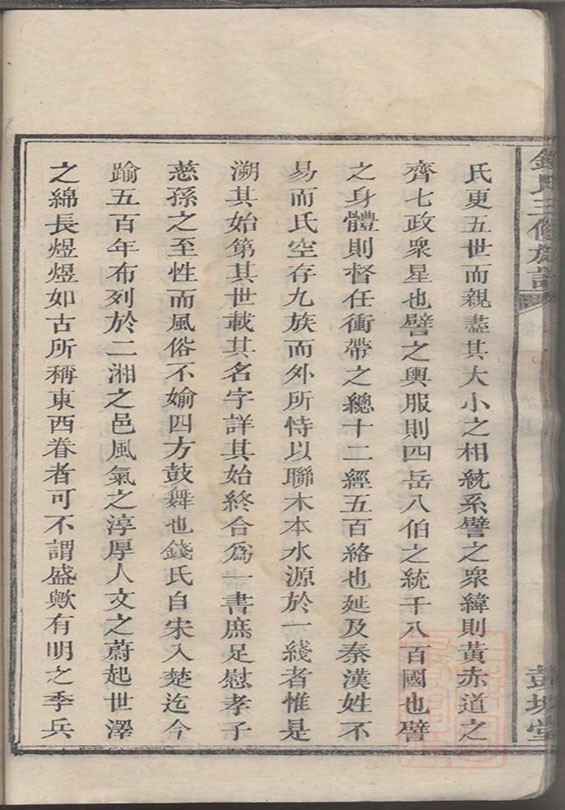 錢氏三修族譜
彭城堂
氏更五世而親盡其大小之相統系譬之衆緯則黃赤道之
齊七政衆星也譬之輿服則四岳八伯之統千八百國也譬
之身體則督任衝帶之總十二經五百絡也延及秦漢姓不
易而氏空存九族而外所恃以聯木本水源於一綫者惟是
溯其始第其世載其名字詳其始終合爲一書庶足慰孝子
慈孫之至性而風俗不媮四方鼓舞也錢氏自宋入楚迄今
踰五百年布列於二湘之邑風氣之淳厚人文之蔚起世澤
之綿長煜煜如古所稱東西眷者可不謂盛歟有明之季兵